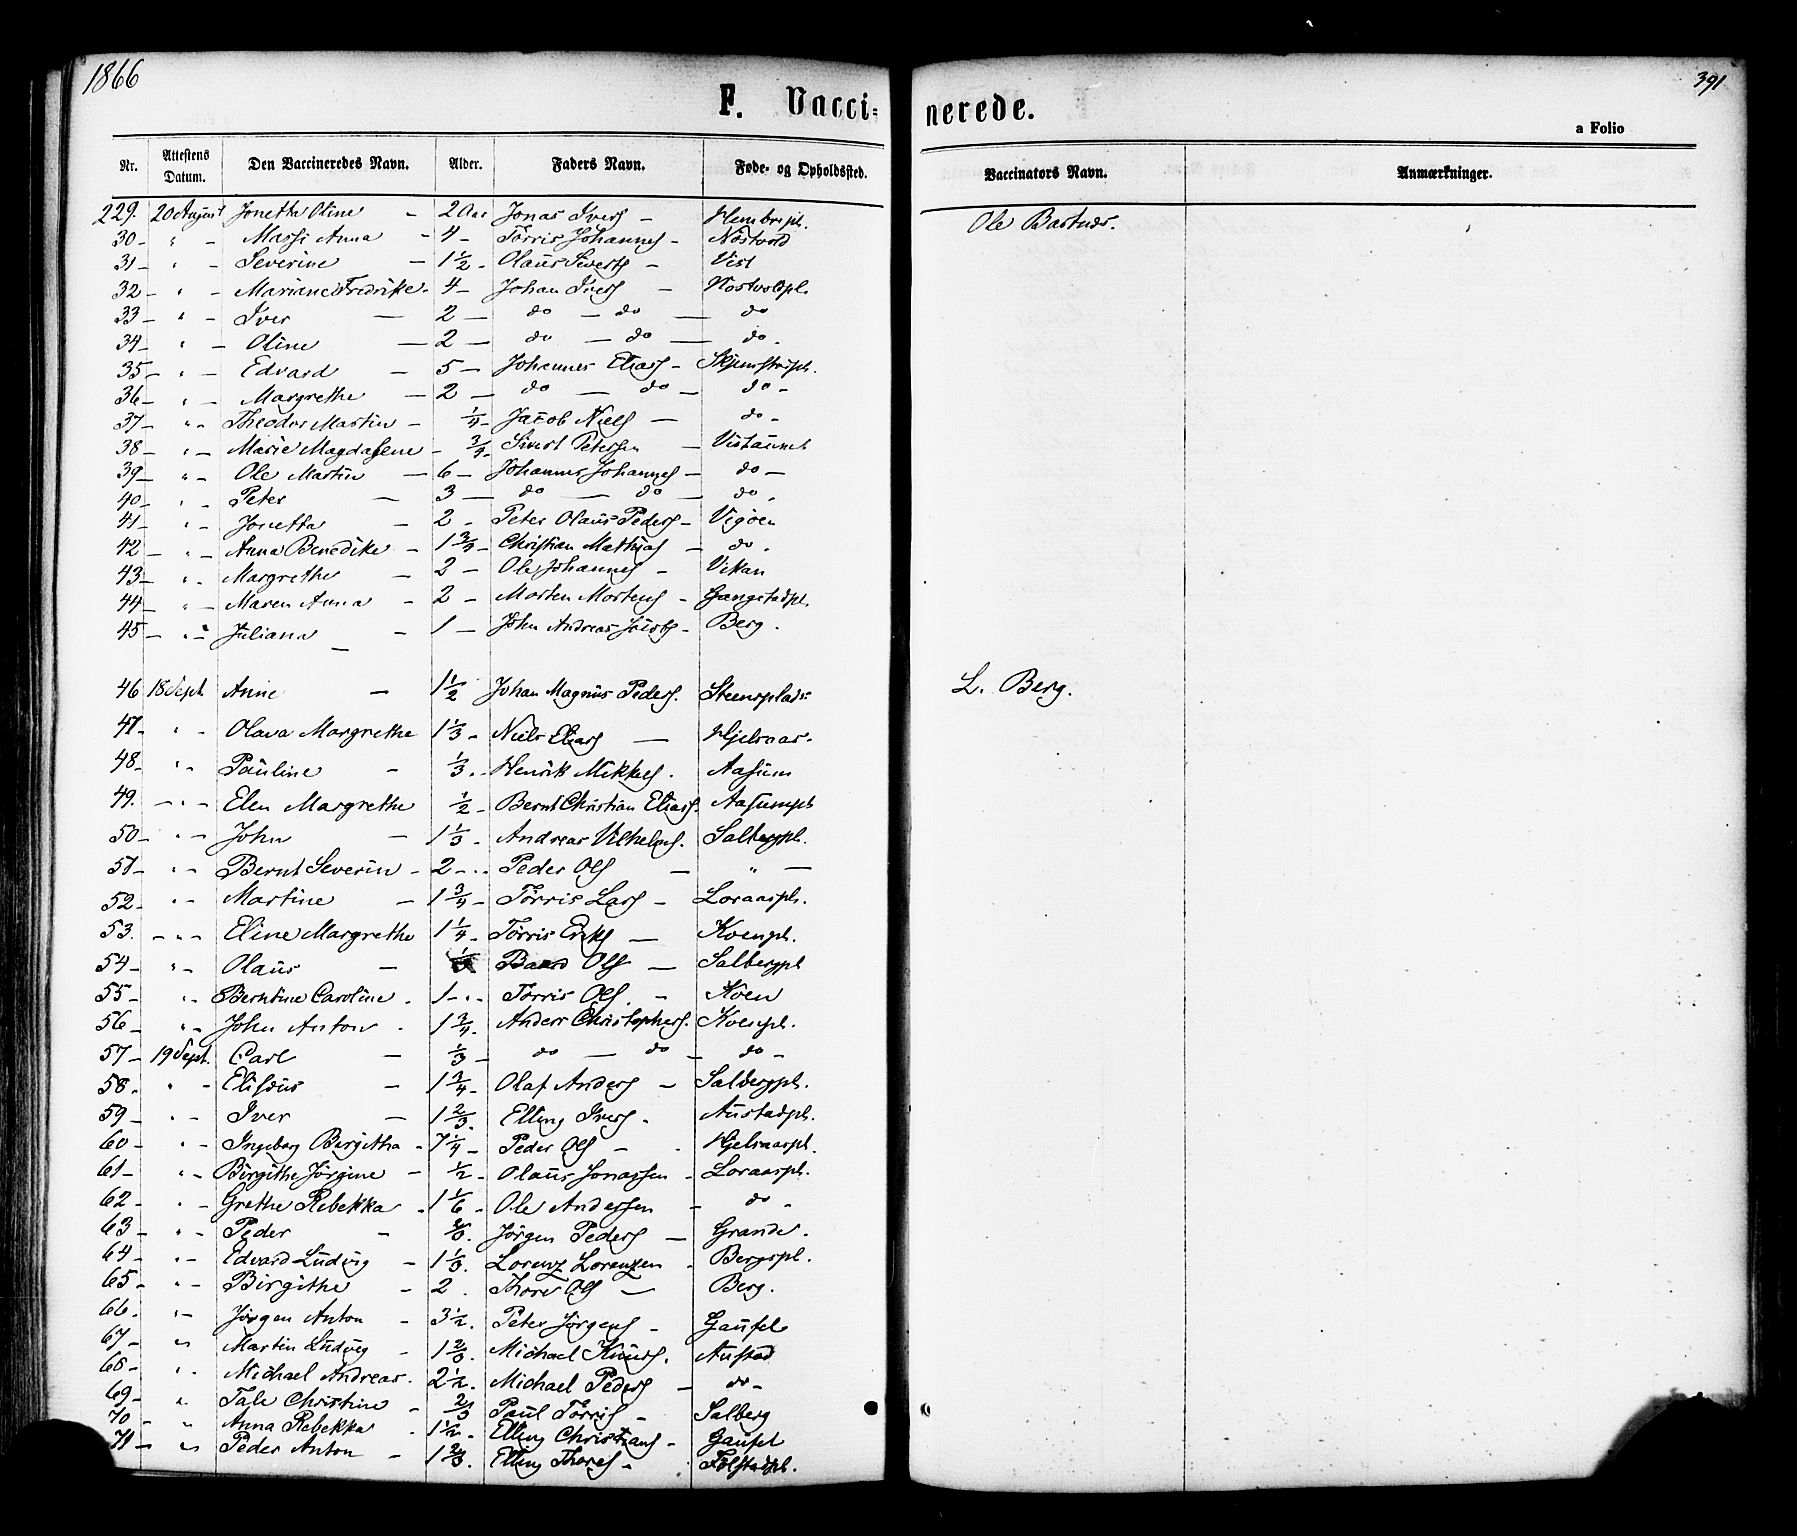 1866
391
F. Vacci= nerede.
a Folio
Nr. Attestens Datum. Den Vaccineredes Navn. Alder. Faders Navn. Føde- og Opholdssted. Vaccinators Navn. Anmærkninger.
229. 20 August Jonetta Oline - 2 Aar Jonas Ivers - Hembrepl. Ole Bastnes.
30 - " - Massi Anna - 4 - Torris Johannes - Nostvold
31 - " - Severine - 1 1/2 - Olaus Siverts - Vist
32 - " - Mariane Fredrikke - 4 - Johan Ivers - Nostvoldpl.
33 - " - Iver - 2 - do - do - do
34 - " - Oline - 2 - do - do - do.
35 - " - Edvard - 5 - Johannes Elias - Skjemstadpl.
36 - " - Margrethe - 2 - do - do - do -
37 - " - Theodor Martin - 1/4 - Jacob Niels - do -
38 - " - Marie Magdalene - 3/4 - Sivert Petersen - Vistaunet
39 - " - Ole Martin - 6 - Johannes Johannes - do -
40 - " - Peter - 3 - do - do - do.
41 - " - Jonetta - 2 - Peter Olaus Peders - Vigöen
42 - " - Anna Benedike - 1 3/4 - Christian Mathias - do.
43 - " - Margrethe - 2 - Ole Johannes - Vikan
44 - " - Maren Anna - 2 - Morten Mortens - Gangstadpl.
45 - " - Juliana - 1 - John Andreas Jacobs - Berg.
46 18 Sept. Anne - 1 1/2 Johan Magnus Peders. Steensplads L. Berg.
47 - " - Olava Margrethe 1 1/3 - Niels Elias - Hjelsaas.
48 - " - Pauline - 1/3 - Henrik Mikkels. Aasum
49. - " - Elen Margrethe 1/2 - Bernt Christian Elias. Aasumpl.
50 - " - John - 1 1/3 - Andreas Vilhelms. Salbergpl.
51 - " - Bernt Severin - 2 - Peder Ols - " -
52 - " - Martine - 1 3/4 - Torris Lars - Loraaspl.
53. - " - Eline Margrethe 1 1/4 - Torris Eriks - Koenpl.
54 - " - Olaus - Baard Ols - Salbergpl
55 - " - Berntine Caroline. 1 - Torris Ols. - Koen
56 - " - John Anton. 1 3/4 - Anders Christophers. Koenpl.
57 - 19 Sept. Carl - 1/3 - do - do - do -
58 - " - Elisæus - 1 3/4 - Olaf Anders - Salbergpl.
59 - " - Iver - 1 2/3 - Elling Ivers. Austadpl.
60 - " - Ingeborg Bergitha - 7 1/4 - Peder Ols - Hjelsaaspl.
61 - " - Birgithe Jørgine - 1/2 - Olaus Jonassen - Loraaspl.
62 - " - Grethe Rebekka - 1 1/6 - Ole Andersen - do -
63 - " - Peder - Jørgen Peders - Grande.
64 - " - Edvard Ludvig - 1 1/3. Lorenz Lorenzen - Bergspl.
65 - " - Birgithe - 2. Thore Ols - Berg.
66 - " - Jørgen Anton - 3 1/2. Peter Jørgens - Gausel
67 - " Martin Ludvig - 1 2/3. Michael Knuds. Austad
68 - " Michael Andreas. 2 1/2. Michael Peders - do -
69 - " Tale Christine - 2/3 Paul Torris - Salberg
70 - " Anna Rebekka. 1 1/2 - Elling Christians - Gausel
71 - " Peder Anton - 1 2/3. Elling Thores - Folstadpl.